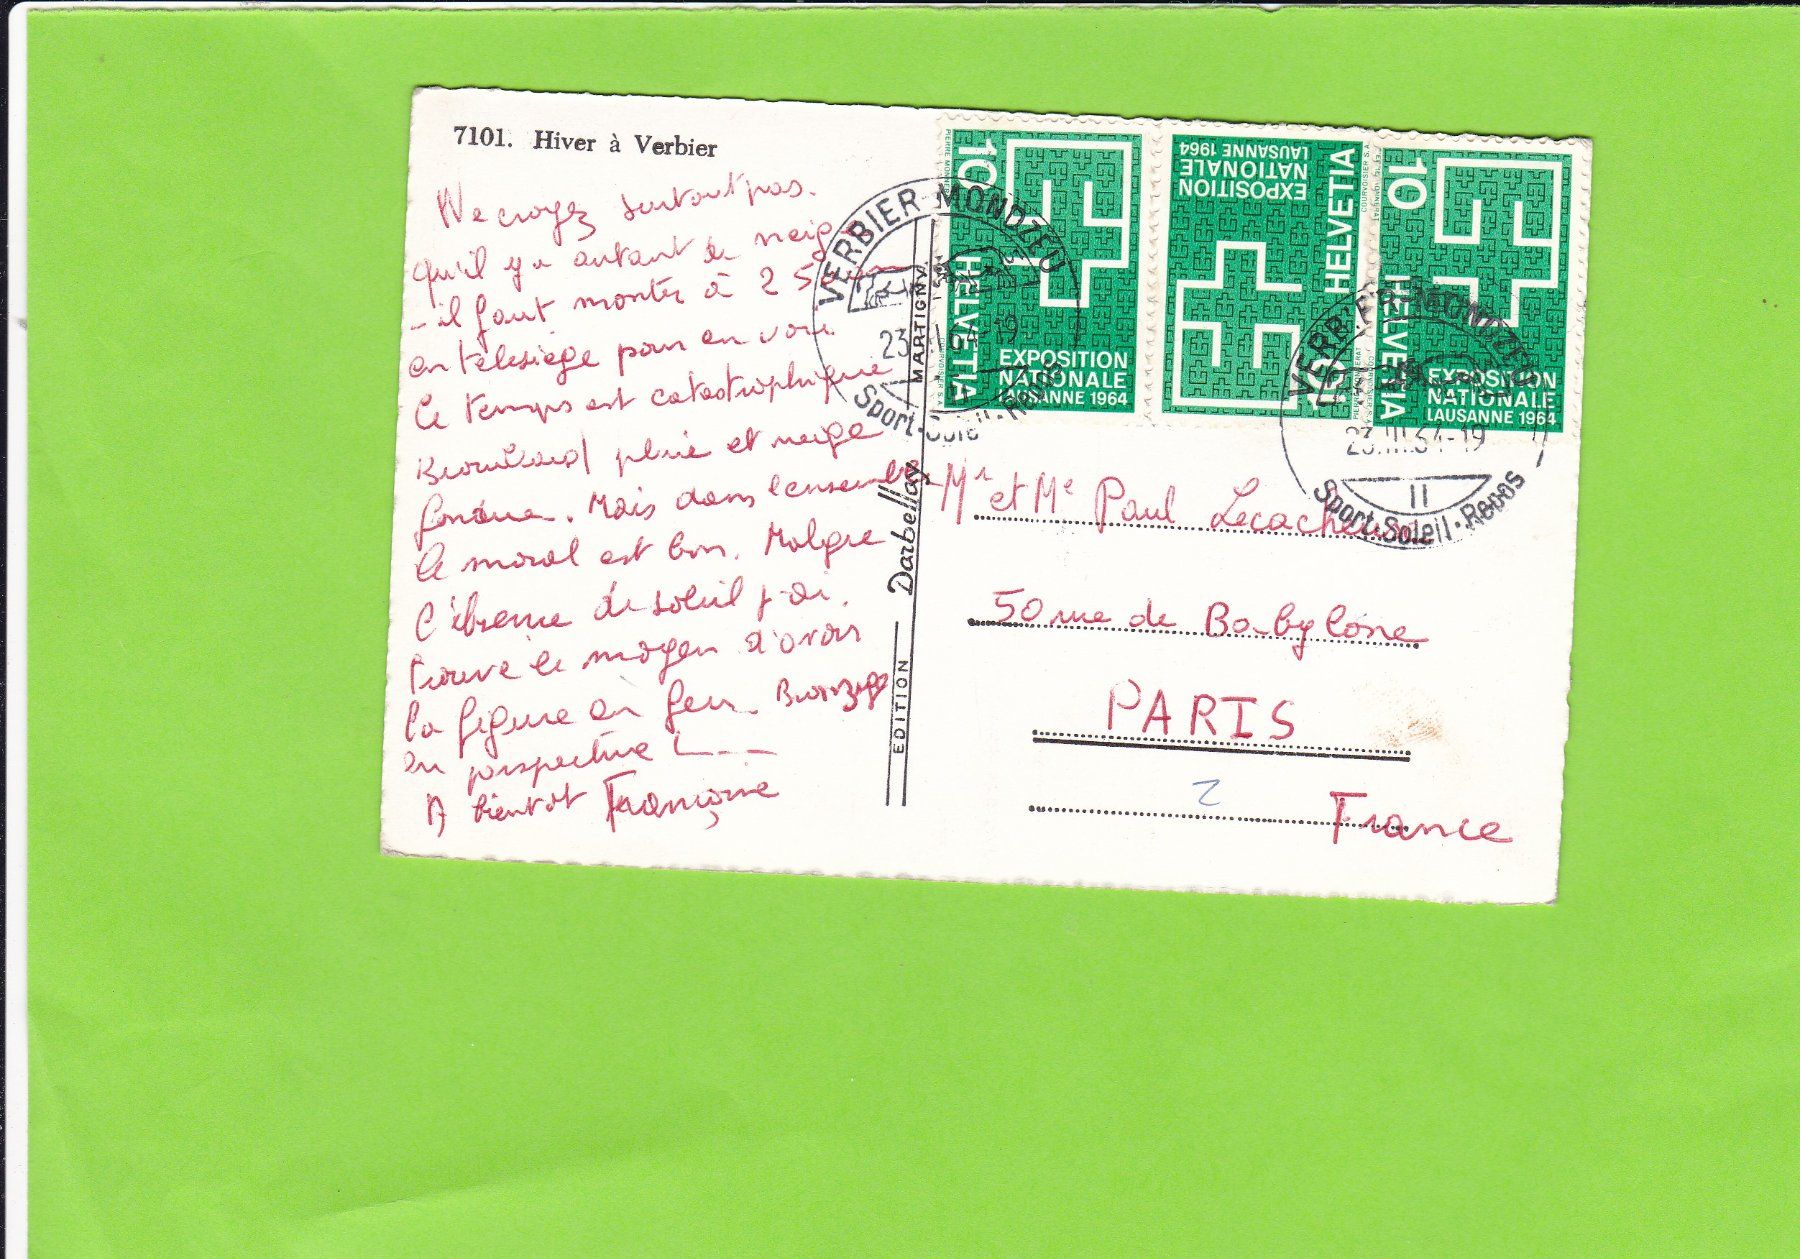 7101. Hiver à Verbier
Ne croyez surtout pas
qu'il y a autant de neige
- il faut monter à 25
en télésiege pour en voir.
Le temps est catastrophique
Brouillard pluie et neige
fondue. Mais dans l'ensemble
le moral est bon. Malgre
l'absence de soleil j'ai
trouve le moyen d'avoir
la figure en feu. Bronzage
en perspective !...
A bientot Françoise
EDITION Darbellay MARTIGNY
VERBIER MONDZEU
23. III 64-19
11
Sport-Soleil-Repos
VERBIER-MONDZEU
23.III.64-19
11
Sport-Soleil-Repos
10
HELVETIA
EXPOSITION
NATIONALE
LAUSANNE 1964
PIERRE MONNERAT
COURVOISIER S.A.
10
HELVETIA
EXPOSITION
NATIONALE
LAUSANNE 1964
PIERRE MONNERAT
COURVOISIER S.A.
10
HELVETIA
EXPOSITION
NATIONALE
LAUSANNE 1964
Mr et Me Paul Lecacheux
50 rue de Babylone
PARIS
2
France